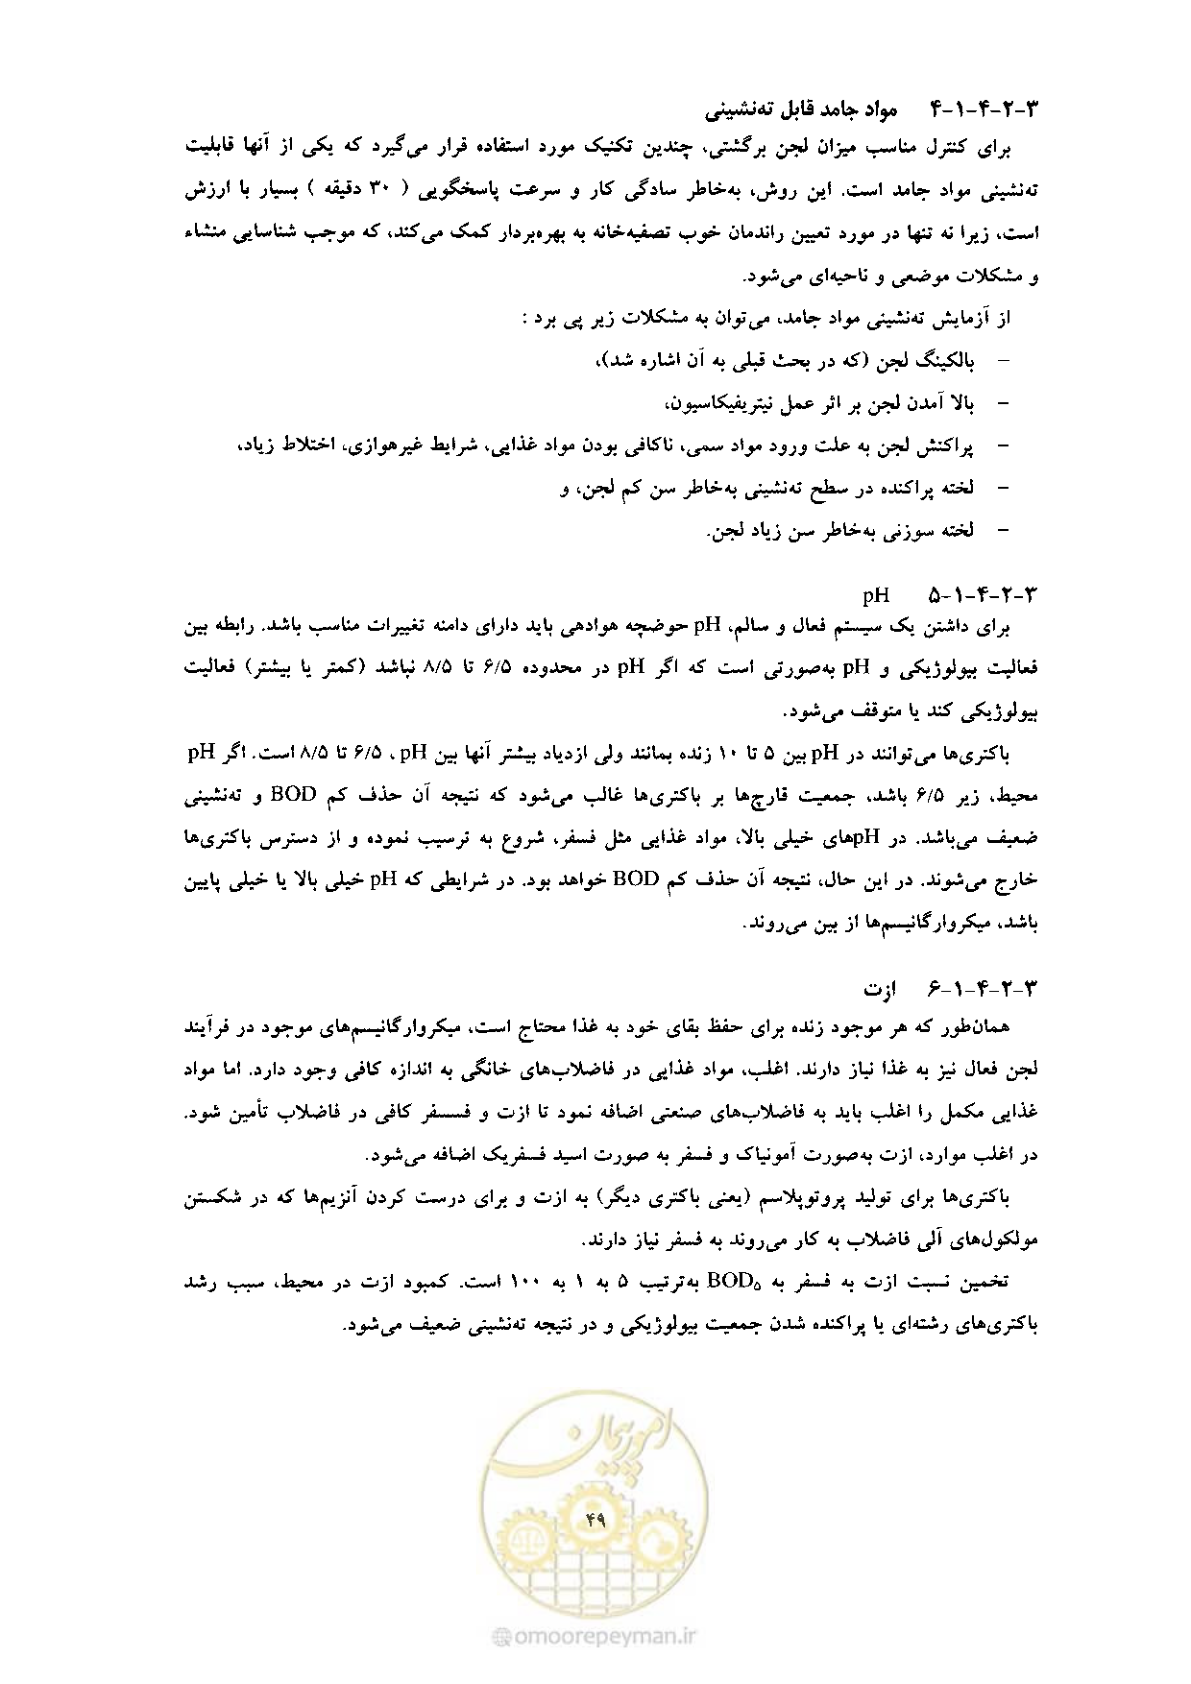 ۳-۲-۴-۱-۴ مواد جامد قابل ته‌نشینی
برای کنترل مناسب میزان لجن برگشتی، چندین تکنیک مورد استفاده قرار می‌گیرد که یکی از آنها قابلیت
ته‌نشینی مواد جامد است. این روش، به‌خاطر سادگی کار و سرعت پاسخگویی ( ۳۰ دقیقه ) بسیار با ارزش
است، زیرا نه تنها در مورد تعیین راندمان خوب تصفیه‌خانه به بهره‌بردار کمک می‌کند، که موجب شناسایی منشاء
و مشکلات موضعی و ناحیه‌ای می‌شود.
از آزمایش ته‌نشینی مواد جامد، می‌توان به مشکلات زیر پی برد :
– بالکینگ لجن (که در بحث قبلی به آن اشاره شد)،
– بالا آمدن لجن بر اثر عمل نیتریفیکاسیون،
– پراکنش لجن به علت ورود مواد سمی، ناکافی بودن مواد غذایی، شرایط غیرهوازی، اختلاط زیاد،
– لخته پراکنده در سطح ته‌نشینی به‌خاطر سن کم لجن، و
– لخته سوزنی به‌خاطر سن زیاد لجن.
۳-۲-۴-۱-۵ pH
برای داشتن یک سیستم فعال و سالم، pH حوضچه هوادهی باید دارای دامنه تغییرات مناسب باشد. رابطه بین
فعالیت بیولوژیکی و pH به‌صورتی است که اگر pH در محدوده ۶/۵ تا ۸/۵ نباشد (کمتر یا بیشتر) فعالیت
بیولوژیکی کند یا متوقف می‌شود.
باکتری‌ها می‌توانند در pH بین ۵ تا ۱۰ زنده بمانند ولی ازدیاد بیشتر آنها بین pH ، ۶/۵ تا ۸/۵ است. اگر pH
محیط، زیر ۶/۵ باشد، جمعیت قارچ‌ها بر باکتری‌ها غالب می‌شود که نتیجه آن حذف کم BOD و ته‌نشینی
ضعیف می‌باشد. در pHهای خیلی بالا، مواد غذایی مثل فسفر، شروع به ترسیب نموده و از دسترس باکتری‌ها
خارج می‌شوند. در این حال، نتیجه آن حذف کم BOD خواهد بود. در شرایطی که pH خیلی بالا یا خیلی پایین
باشد، میکروارگانیسم‌ها از بین می‌روند.
۳-۲-۴-۱-۶ ازت
همان‌طور که هر موجود زنده برای حفظ بقای خود به غذا محتاج است، میکروارگانیسم‌های موجود در فرآیند
لجن فعال نیز به غذا نیاز دارند. اغلب، مواد غذایی در فاضلاب‌های خانگی به اندازه کافی وجود دارد. اما مواد
غذایی مکمل را اغلب باید به فاضلاب‌های صنعتی اضافه نمود تا ازت و فسسفر کافی در فاضلاب تأمین شود.
در اغلب موارد، ازت به‌صورت آمونیاک و فسفر به صورت اسید فسفریک اضافه می‌شود.
باکتری‌ها برای تولید پروتوپلاسم (یعنی باکتری دیگر) به ازت و برای درست کردن آنزیم‌ها که در شکستن
مولکول‌های آلی فاضلاب به کار می‌روند به فسفر نیاز دارند.
تخمین نسبت ازت به فسفر به BOD۵ به‌ترتیب ۵ به ۱ به ۱۰۰ است. کمبود ازت در محیط، سبب رشد
باکتری‌های رشته‌ای یا پراکنده شدن جمعیت بیولوژیکی و در نتیجه ته‌نشینی ضعیف می‌شود.
امور پیمان
۴۹
omoorepeyman.ir